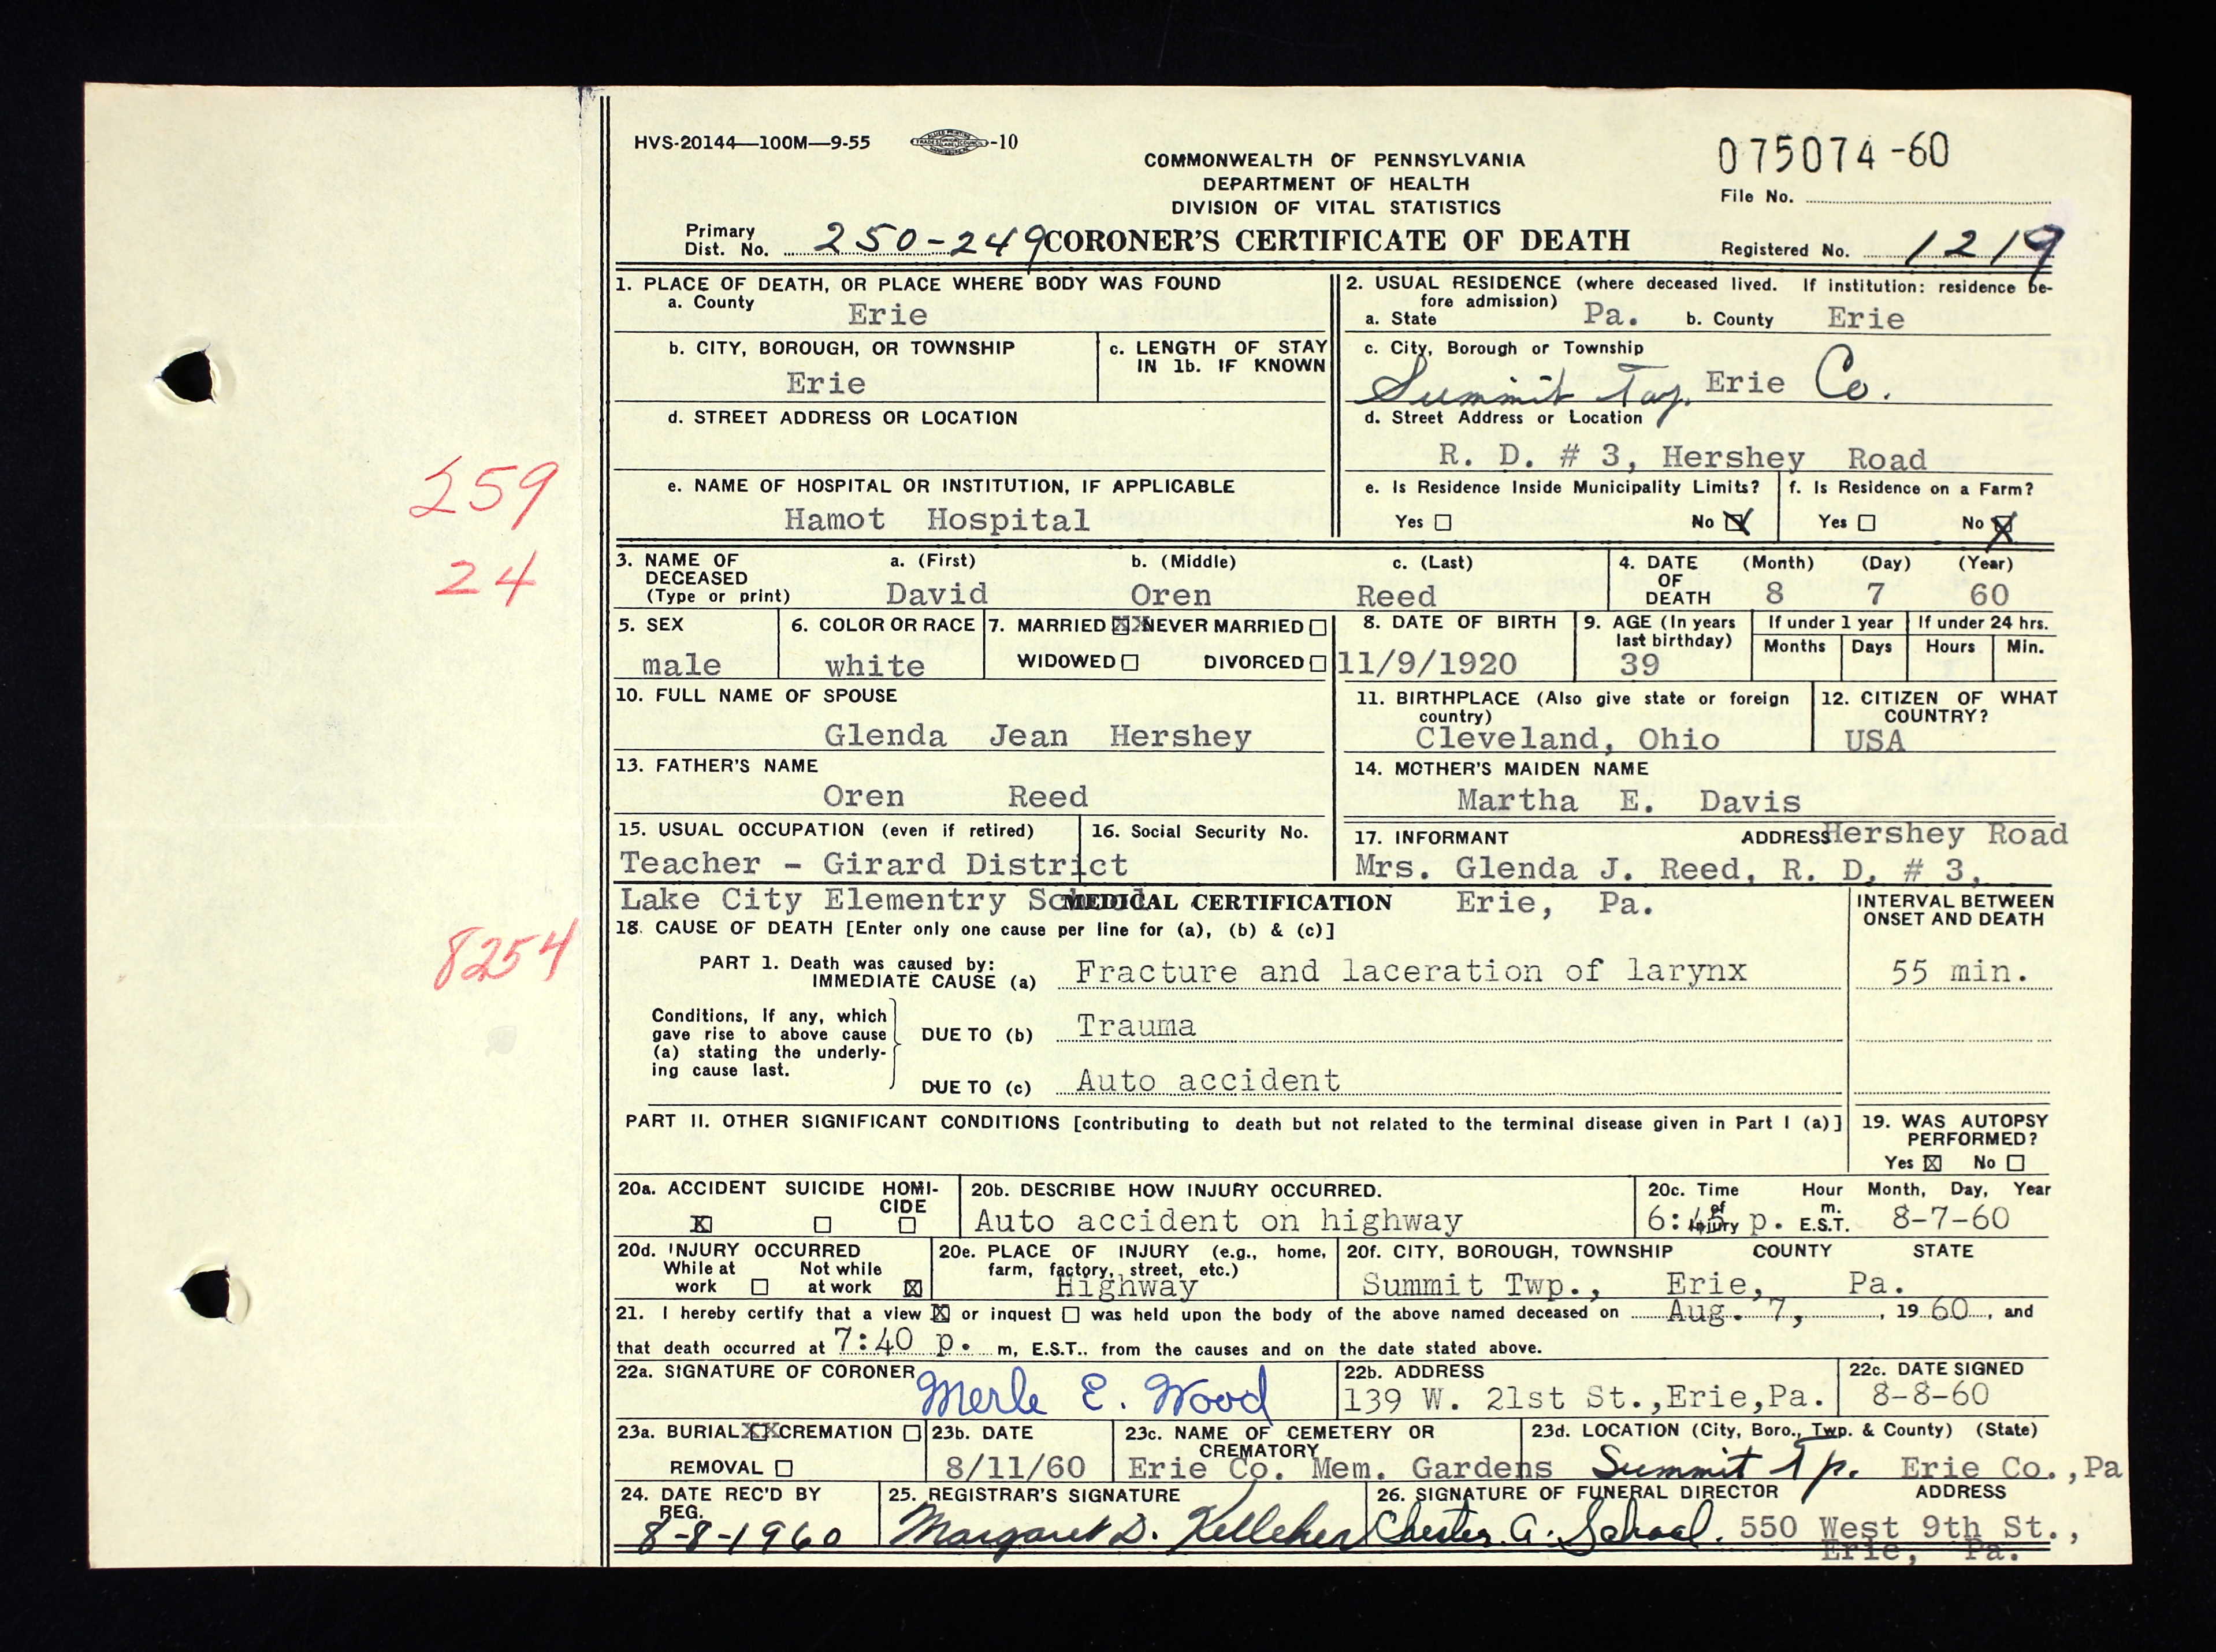 HVS-20144—100M—9-55 -10
075074-60
COMMONWEALTH OF PENNSYLVANIA
DEPARTMENT OF HEALTH
DIVISION OF VITAL STATISTICS
File No.
Primary Dist. No. 250-249
CORONER'S CERTIFICATE OF DEATH
Registered No. 1219
1. PLACE OF DEATH, OR PLACE WHERE BODY WAS FOUND
a. County Erie
b. CITY, BOROUGH, OR TOWNSHIP
Erie
c. LENGTH OF STAY IN 1b. IF KNOWN
d. STREET ADDRESS OR LOCATION
e. NAME OF HOSPITAL OR INSTITUTION, IF APPLICABLE
Hamot Hospital
2. USUAL RESIDENCE (where deceased lived. If institution: residence be-
fore admission)
a. State Pa. b. County Erie
c. City, Borough or Township
Summit Twp. Erie Co.
d. Street Address or Location
R. D. # 3, Hershey Road
e. Is Residence Inside Municipality Limits?
Yes No X
f. Is Residence on a Farm?
Yes No X
259
24
3. NAME OF DECEASED (Type or print)
a. (First) b. (Middle) c. (Last)
David Oren Reed
4. DATE OF DEATH (Month) (Day) (Year)
8 7 60
5. SEX
male
6. COLOR OR RACE
white
7. MARRIED XX NEVER MARRIED
WIDOWED DIVORCED
8. DATE OF BIRTH
11/9/1920
9. AGE (In years last birthday)
39
If under 1 year
Months Days
If under 24 hrs.
Hours Min.
10. FULL NAME OF SPOUSE
Glenda Jean Hershey
11. BIRTHPLACE (Also give state or foreign country)
Cleveland, Ohio
12. CITIZEN OF WHAT COUNTRY?
USA
13. FATHER'S NAME
Oren Reed
14. MOTHER'S MAIDEN NAME
Martha E. Davis
15. USUAL OCCUPATION (even if retired)
16. Social Security No.
Teacher - Girard District
Lake City Elementry School
17. INFORMANT ADDRESS Hershey Road
Mrs. Glenda J. Reed, R. D. # 3,
Erie, Pa.
MEDICAL CERTIFICATION
INTERVAL BETWEEN ONSET AND DEATH
8254
18. CAUSE OF DEATH [Enter only one cause per line for (a), (b) & (c)]
PART 1. Death was caused by:
IMMEDIATE CAUSE (a) Fracture and laceration of larynx 55 min.
Conditions, if any, which
gave rise to above cause
(a) stating the underly-
ing cause last.
DUE TO (b) Trauma
DUE TO (c) Auto accident
PART II. OTHER SIGNIFICANT CONDITIONS [contributing to death but not related to the terminal disease given in Part I (a)]
19. WAS AUTOPSY PERFORMED?
Yes X No
20a. ACCIDENT SUICIDE HOMI-CIDE
X
20b. DESCRIBE HOW INJURY OCCURRED.
Auto accident on highway
20c. Time of Injury Hour m. E.S.T. Month, Day, Year
6: p. 8-7-60
20d. INJURY OCCURRED
While at work Not while at work X
20e. PLACE OF INJURY (e.g., home, farm, factory, street, etc.)
Highway
20f. CITY, BOROUGH, TOWNSHIP COUNTY STATE
Summit Twp., Erie, Pa.
21. I hereby certify that a view X or inquest was held upon the body of the above named deceased on Aug. 7, , 19 60, and
that death occurred at 7:40 p. m, E.S.T.. from the causes and on the date stated above.
22a. SIGNATURE OF CORONER
Merle E. Wood
22b. ADDRESS
139 W. 21st St.,Erie,Pa.
22c. DATE SIGNED
8-8-60
23a. BURIAL XX CREMATION
REMOVAL
23b. DATE
8/11/60
23c. NAME OF CEMETERY OR CREMATORY
Erie Co. Mem. Gardens
23d. LOCATION (City, Boro., Twp. & County) (State)
Summit Tp. Erie Co.,Pa
24. DATE REC'D BY REG.
8-8-1960
25. REGISTRAR'S SIGNATURE
Margaret D. Kelleher
26. SIGNATURE OF FUNERAL DIRECTOR ADDRESS
Chester A. Schaal. 550 West 9th St.,
Erie, Pa.